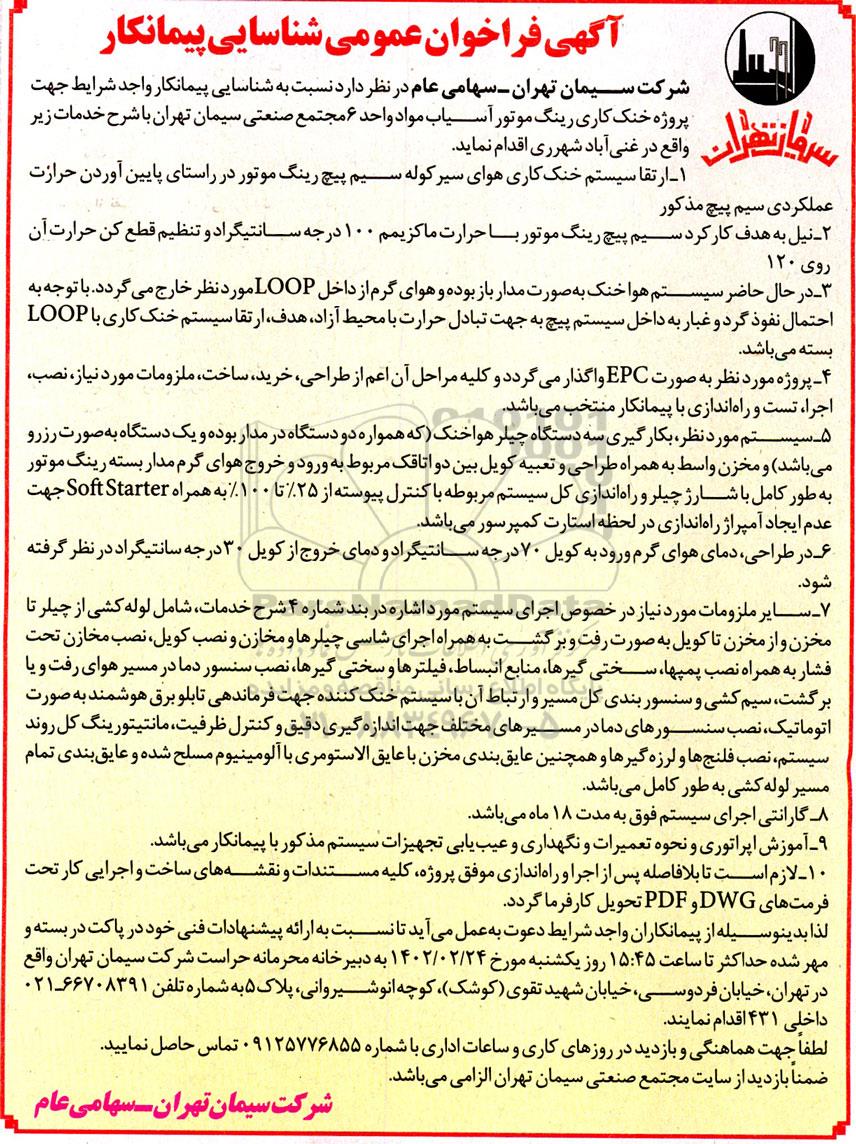 آگهی فراخوان عمومی شناسایی پیمانکار
سیمان تهران
شرکت سیمان تهران ـ سهامی عام در نظر دارد نسبت به شناسایی پیمانکار واجد شرایط جهت
پروژه خنک کاری رینگ موتور آسیاب مواد واحد ۶ مجتمع صنعتی سیمان تهران با شرح خدمات زیر
واقع در غنی‌آباد شهرری اقدام نماید.
۱ـ ارتقا سیستم خنک کاری هوای سیرکوله سیم پیچ رینگ موتور در راستای پایین آوردن حرارت
عملکردی سیم پیچ مذکور
۲ـ نیل به هدف کارکرد سیم پیچ رینگ موتور با حرارت ماکزیمم ۱۰۰ درجه سانتیگراد و تنظیم قطع کن حرارت آن
روی ۱۲۰
۳ـ در حال حاضر سیستم هوا خنک به‌صورت مدار باز بوده و هوای گرم از داخل LOOP مورد نظر خارج می گردد. با توجه به
احتمال نفوذ گرد و غبار به داخل سیستم پیچ به جهت تبادل حرارت با محیط آزاد، هدف، ارتقا سیستم خنک کاری با LOOP
بسته می‌باشد.
۴ـ پروژه مورد نظر به صورت EPC واگذار می گردد و کلیه مراحل آن اعم از طراحی، خرید، ساخت، ملزومات مورد نیاز، نصب،
اجرا، تست و راه‌اندازی با پیمانکار منتخب می‌باشد.
۵ـ سیستم مورد نظر، بکارگیری سه دستگاه چیلر هوا خنک (که همواره دو دستگاه در مدار بوده و یک دستگاه به‌صورت رزرو
می‌باشد) و مخزن واسط به همراه طراحی و تعبیه کویل بین دو اتاقک مربوط به ورود و خروج هوای گرم مدار بسته رینگ موتور
به طور کامل با شارژ چیلر و راه‌اندازی کل سیستم مربوطه با کنترل پیوسته از ۲۵٪ تا ۱۰۰٪ به همراه Soft Starter جهت
عدم ایجاد آمپراژ راه‌اندازی در لحظه استارت کمپرسور می‌باشد.
۶ـ در طراحی، دمای هوای گرم ورود به کویل ۷۰ درجه سانتیگراد و دمای خروج از کویل ۳۰ درجه سانتیگراد در نظر گرفته
شود.
۷ـ سایر ملزومات مورد نیاز در خصوص اجرای سیستم مورد اشاره در بند شماره ۴ شرح خدمات، شامل لوله کشی از چیلر تا
مخزن و از مخزن تا کویل به صورت رفت و برگشت به همراه اجرای شاسی چیلرها و مخازن و نصب کویل، نصب مخازن تحت
فشار به همراه نصب پمپها، سختی گیرها، منابع انبساط، فیلترها و سختی گیرها، نصب سنسور دما در مسیر هوای رفت و یا
برگشت، سیم کشی و سنسور بندی کل مسیر و ارتباط آن با سیستم خنک کننده جهت فرماندهی تابلو برق هوشمند به صورت
اتوماتیک، نصب سنسورهای دما در مسیرهای مختلف جهت اندازه گیری دقیق و کنترل ظرفیت، مانتیتورینگ کل روند
سیستم، نصب فلنج‌ها و لرزه گیرها و همچنین عایق‌بندی مخزن با عایق الاستومری با آلومینیوم مسلح شده و عایق‌بندی تمام
مسیر لوله‌کشی به طور کامل می‌باشد.
۸ـ گارانتی اجرای سیستم فوق به مدت ۱۸ ماه می‌باشد.
۹ـ آموزش اپراتوری و نحوه تعمیرات و نگهداری و عیب‌یابی تجهیزات سیستم مذکور با پیمانکار می‌باشد.
۱۰ـ لازم است تا بلافاصله پس از اجرا و راه‌اندازی موفق پروژه، کلیه مستندات و نقشه‌های ساخت و اجرایی کار تحت
فرمت‌های DWG و PDF تحویل کارفرما گردد.
لذا بدینوسیله از پیمانکاران واجد شرایط دعوت به‌عمل می‌آید تا نسبت به ارائه پیشنهادات فنی خود در پاکت در بسته و
مهر شده حداکثر تا ساعت ۱۵:۴۵ روز یکشنبه مورخ ۱۴۰۲/۰۲/۲۴ به دبیرخانه محرمانه حراست شرکت سیمان تهران واقع
در تهران، خیابان فردوسی، خیابان شهید تقوی (کوشک)، کوچه انوشیروانی، پلاک ۵ به شماره تلفن ۶۶۷۰۸۳۹۱ـ۰۲۱
داخلی ۴۳۱ اقدام نمایند.
لطفاً جهت هماهنگی و بازدید در روزهای کاری و ساعات اداری با شماره ۰۹۱۲۵۷۷۶۸۵۵ تماس حاصل نمایید.
ضمناً بازدید از سایت مجتمع صنعتی سیمان تهران الزامی می‌باشد.
شرکت سیمان تهران ـ سهامی عام
ParsNamadData